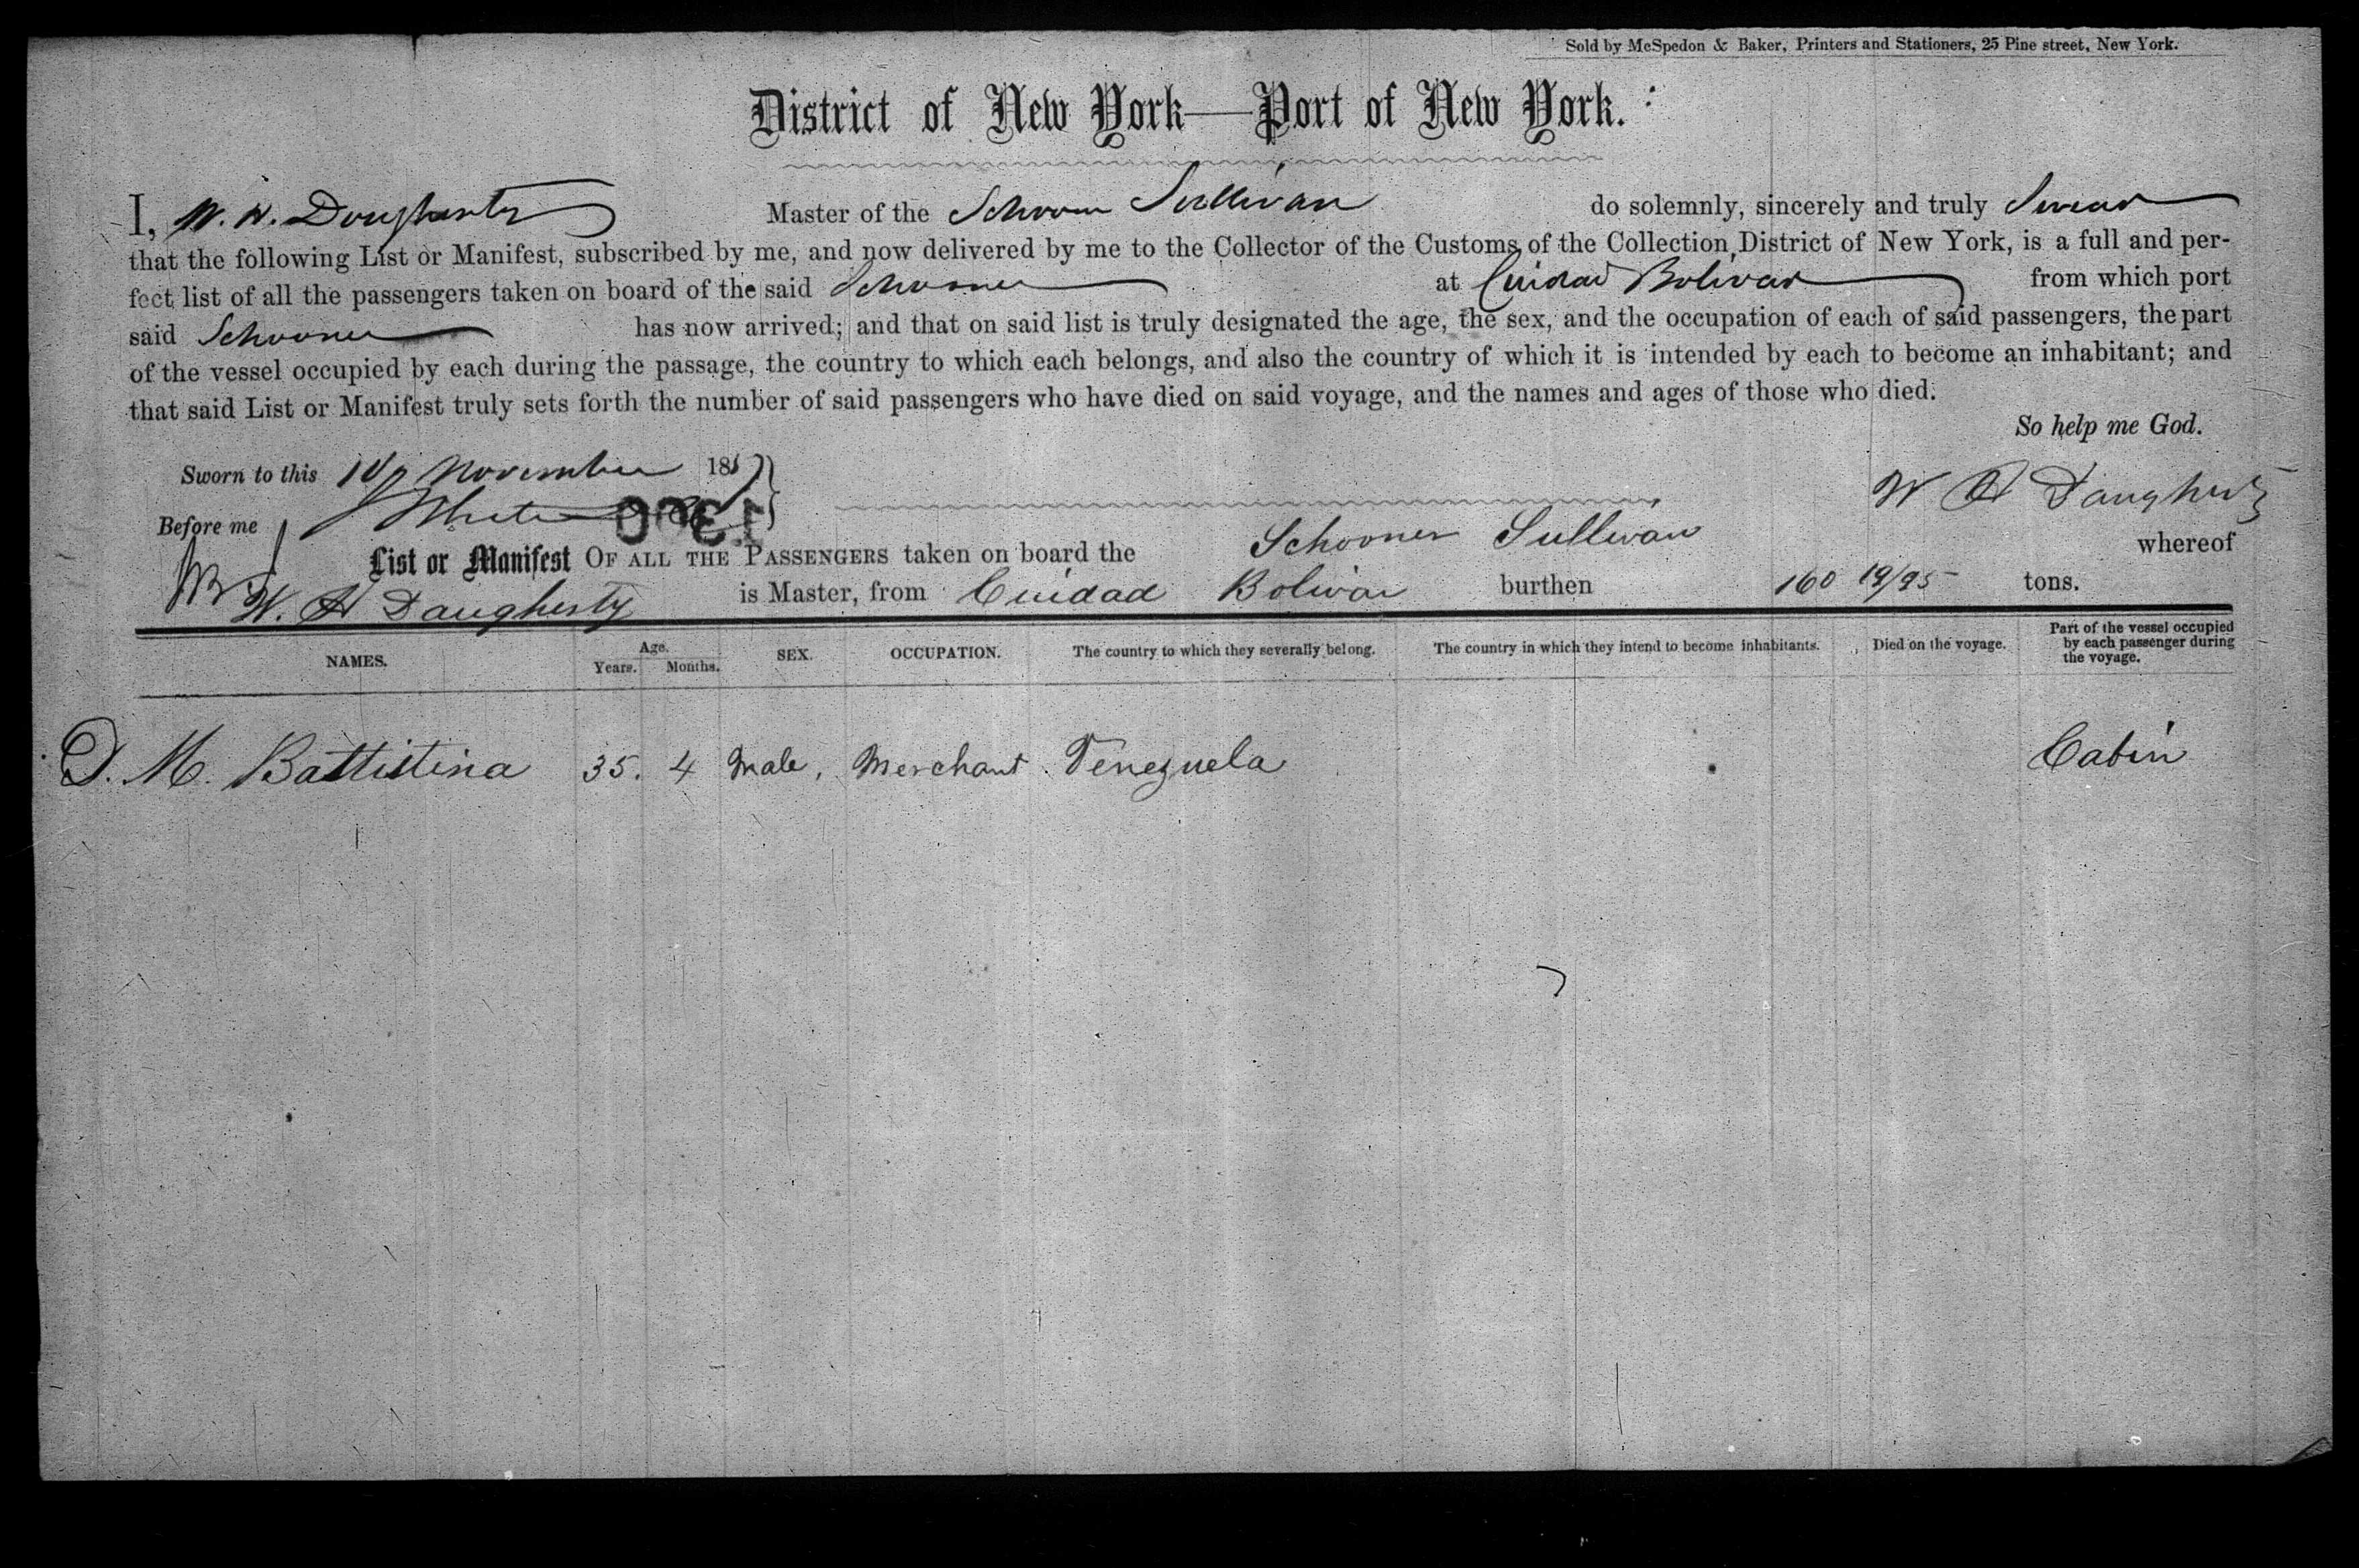 Sold by McSpedon & Baker, Printers and Stationers, 25 Pine street, New York.
District of New York—Port of New York.
I, W. H. Dougherty Master of the Schoon Sullivan do solemnly, sincerely and truly Swear
that the following List or Manifest, subscribed by me, and now delivered by me to the Collector of the Customs of the Collection District of New York, is a full and per-
fect list of all the passengers taken on board of the said Schooner at Cuidad Bolivar from which port
said Schooner has now arrived; and that on said list is truly designated the age, the sex, and the occupation of each of said passengers, the part
of the vessel occupied by each during the passage, the country to which each belongs, and also the country of which it is intended by each to become an inhabitant; and
that said List or Manifest truly sets forth the number of said passengers who have died on said voyage, and the names and ages of those who died.
So help me God.
Sworn to this November 185 W H Daugherty
Before me
List or Manifest OF ALL THE PASSENGERS taken on board the Schooner Sullivan whereof
W. H Daugherty is Master, from Cuidad Bolivar burthen 160 19/95 tons.
NAMES. Age. Years. Months. SEX. OCCUPATION. The country to which they severally belong. The country in which they intend to become inhabitants. Died on the voyage. Part of the vessel occupied by each passenger during the voyage.
D. M. Battistina 35. 4 Male, Merchant. Venezuela Cabin